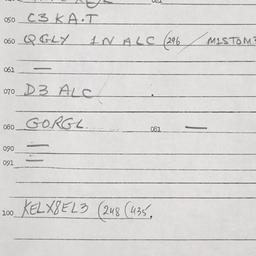 050 C3 KA.T
060 QGLY 1N ALC (296 / M1STOM
061 —
070 D3 ALC
080 GORGL 081 —
090 —
091 —
100 KELX8EL3 (248 (435,